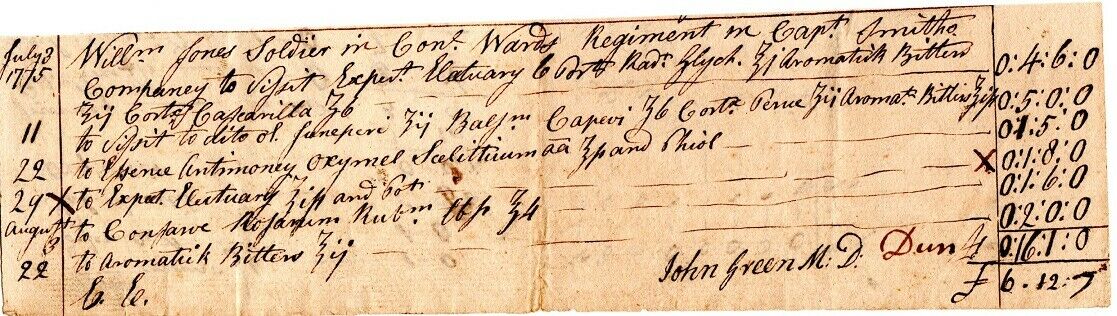 July 3 Willm Jones Soldier in Conl. Wards Regiment in Capt. Smiths
1775 Companey to Visit Expect. Electuary & Pott Rad. Glych. ʒj Aromatick Bitters 0:4:6:0
ʒij Cortx Cascarilla ʒ6
11 to Visit to dito ol. Juneperi ʒij Balsm Capevi ʒ6 Cortx Peruv ʒij Aromatk Bitters ʒiss 0:5:0:0
22 to Essence Antimoney Oxymel Scelitticum aa ʒss and Phiol 0:1:5:0
29 X to Expect Electuary ʒiss and Pott X 0:1:8:0
August 3 to Consarve Rosarum Rubm ℔ss ʒ4 0:1:6:0
22 to Aromatick Bitters ʒij 0:2:0:0
E. E. John Green M: D. Dun 0:16:1:0
£ 6-12-7